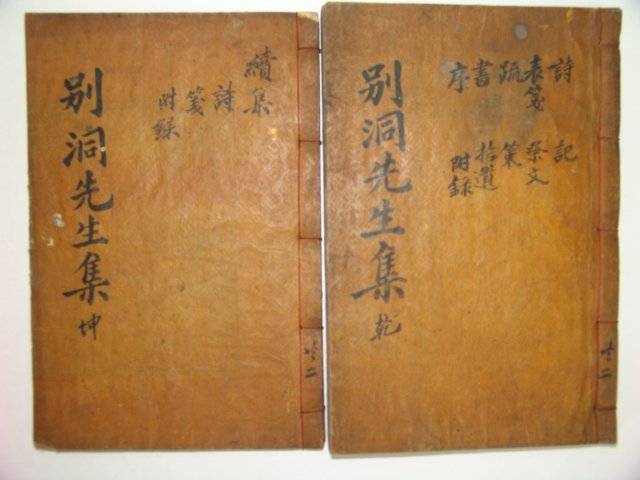 共二
詩 記
表箋 祭文
疏 策
書 拾遺
序 附錄
別洞先生集 乾
共二
續集
詩
箋
附錄
別洞先生集 坤